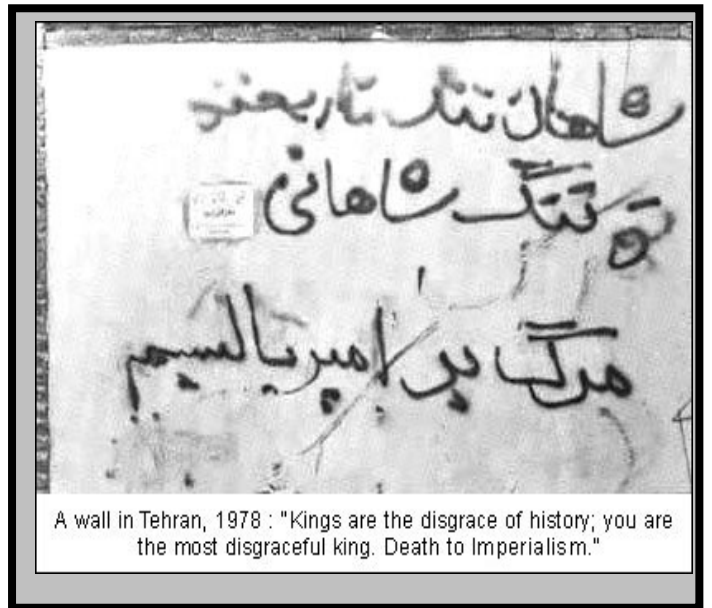 شاهان ننگ تاریخند
تو ننگ شاهانی
مرگ بر امپریالیسم
A wall in Tehran, 1978 : "Kings are the disgrace of history; you are
the most disgraceful king. Death to Imperialism."